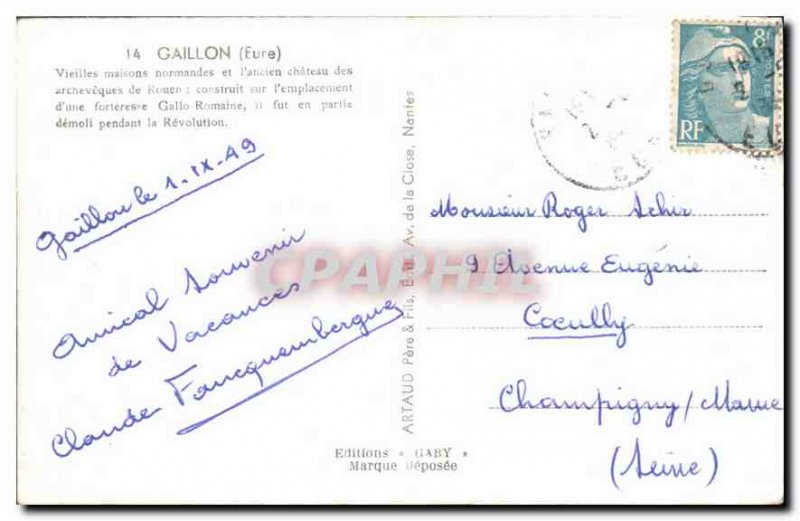 14 GAILLON (Eure)
Vieilles maisons normandes et l'ancien château des
archevêques de Rouen : construit sur l'emplacement
d'une forteresse Gallo-Romaine, il fut en partie
démoli pendant la Révolution.
Gaillon le 1-IX-49
Amical Souvenir
de Vacances
Claude Faucquembergue
ARTAUD Père & Fils, Edit. Av. de la Close, Nantes
Editions « GABY »
Marque Déposée
RF
8
Monsieur Roger Schir
9 Avenue Eugénie
Coeully
Champigny/Marne
(Seine)
CPAPHIL